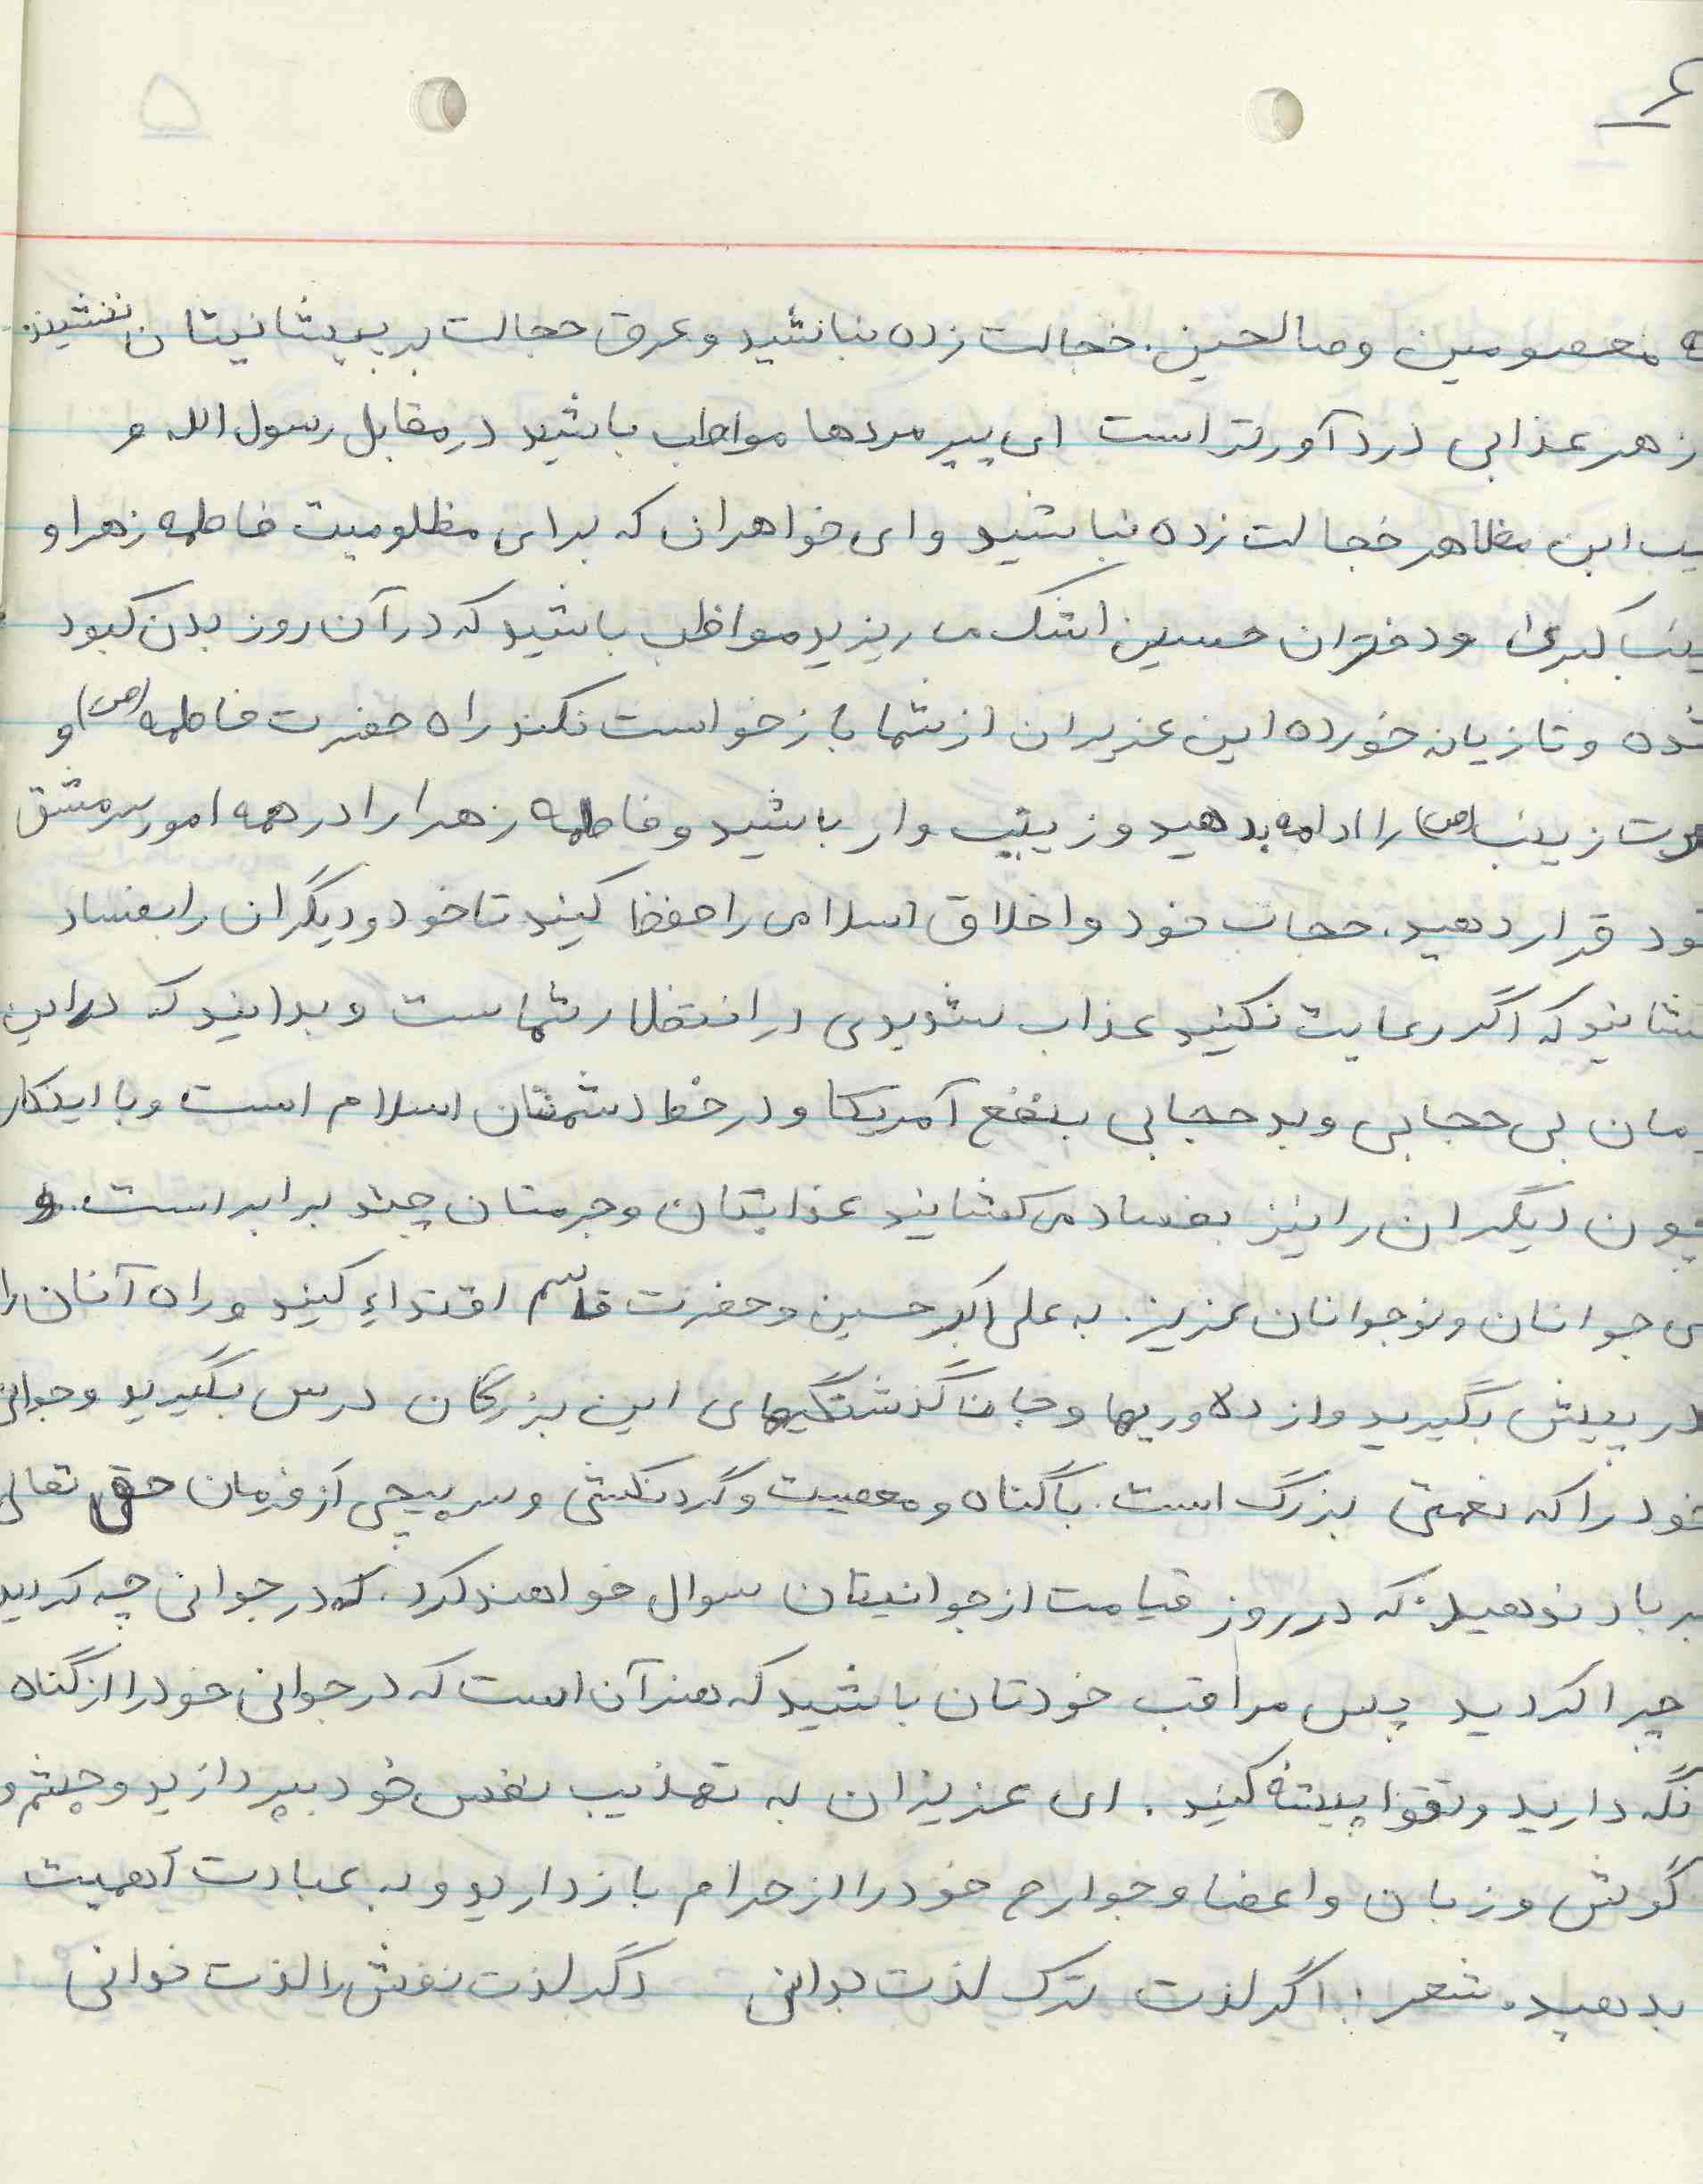 ۶
ه معصومین وصالحین. خجالت زده نباشید و عرق خجالت بر پیشانیتان ننشیند
ز هر عذابی درد آورتر است ای پیرمردها مواظب باشید در مقابل رسول الله و
یب ابن مظاهر خجالت زده نباشید و ای خواهران که برای مظلومیت فاطمه زهرا و
ینب کبری و دختران حسین اشک می ریزید مواظب باشید که در آن روز بدن کبود
شده و تازیانه خورده این عزیران از شما بازخواست نکند راه حضرت فاطمه (س) و
رت زینب (س) را ادامه بدهید و زینب وار باشید و فاطمه زهرا را در همه امور سرمشق
ود قرار دهید. حجاب خود و اخلاق اسلامی را حفظ کنید تا خود و دیگران را بفساد
کشانید که اگر رعایت نکنید عذاب شدیدی در انتظار شماست و بدانید که در این
مان بی حجابی و بد حجابی بنفع آمریکا و در خط دشمنان اسلام است و با اینکار
چون دیگران را نیز بفساد می کشانید عذابتان و جرمتان چند برابر است. و
ی جوانان و نوجوانان عزیز. به علی اکبر حسین و حضرت قاسم اقتداء کنید و راه آنان را
در پیش بگیرید و از دلاوریها و جان گذشتگیهای این بزرگان درس بگیرید و جوانی
خود را که نعمتی بزرگ است. با گناه و معصیت و گردنکشی و سرپیچی از فرمان حق تعالی
بر باد ندهید. که در روز قیامت از جوانیتان سوال خواهند کرد. که در جوانی چه کردید
چرا کردید پس مراقب خودتان باشید که هنر آن است که در جوانی خود را از گناه
نگه دارید و تقوا پیشه کنید. ای عزیزان به تهذیب نفس خود بپردازید و چشم و
گوش و زبان و اعضا و جوارح خود را از حرام باز دارید و به عبادت اهمیت
بدهید. شعر: اگر لذت ترک لذت بدانی دگر لذت نفس را لذت خوانی